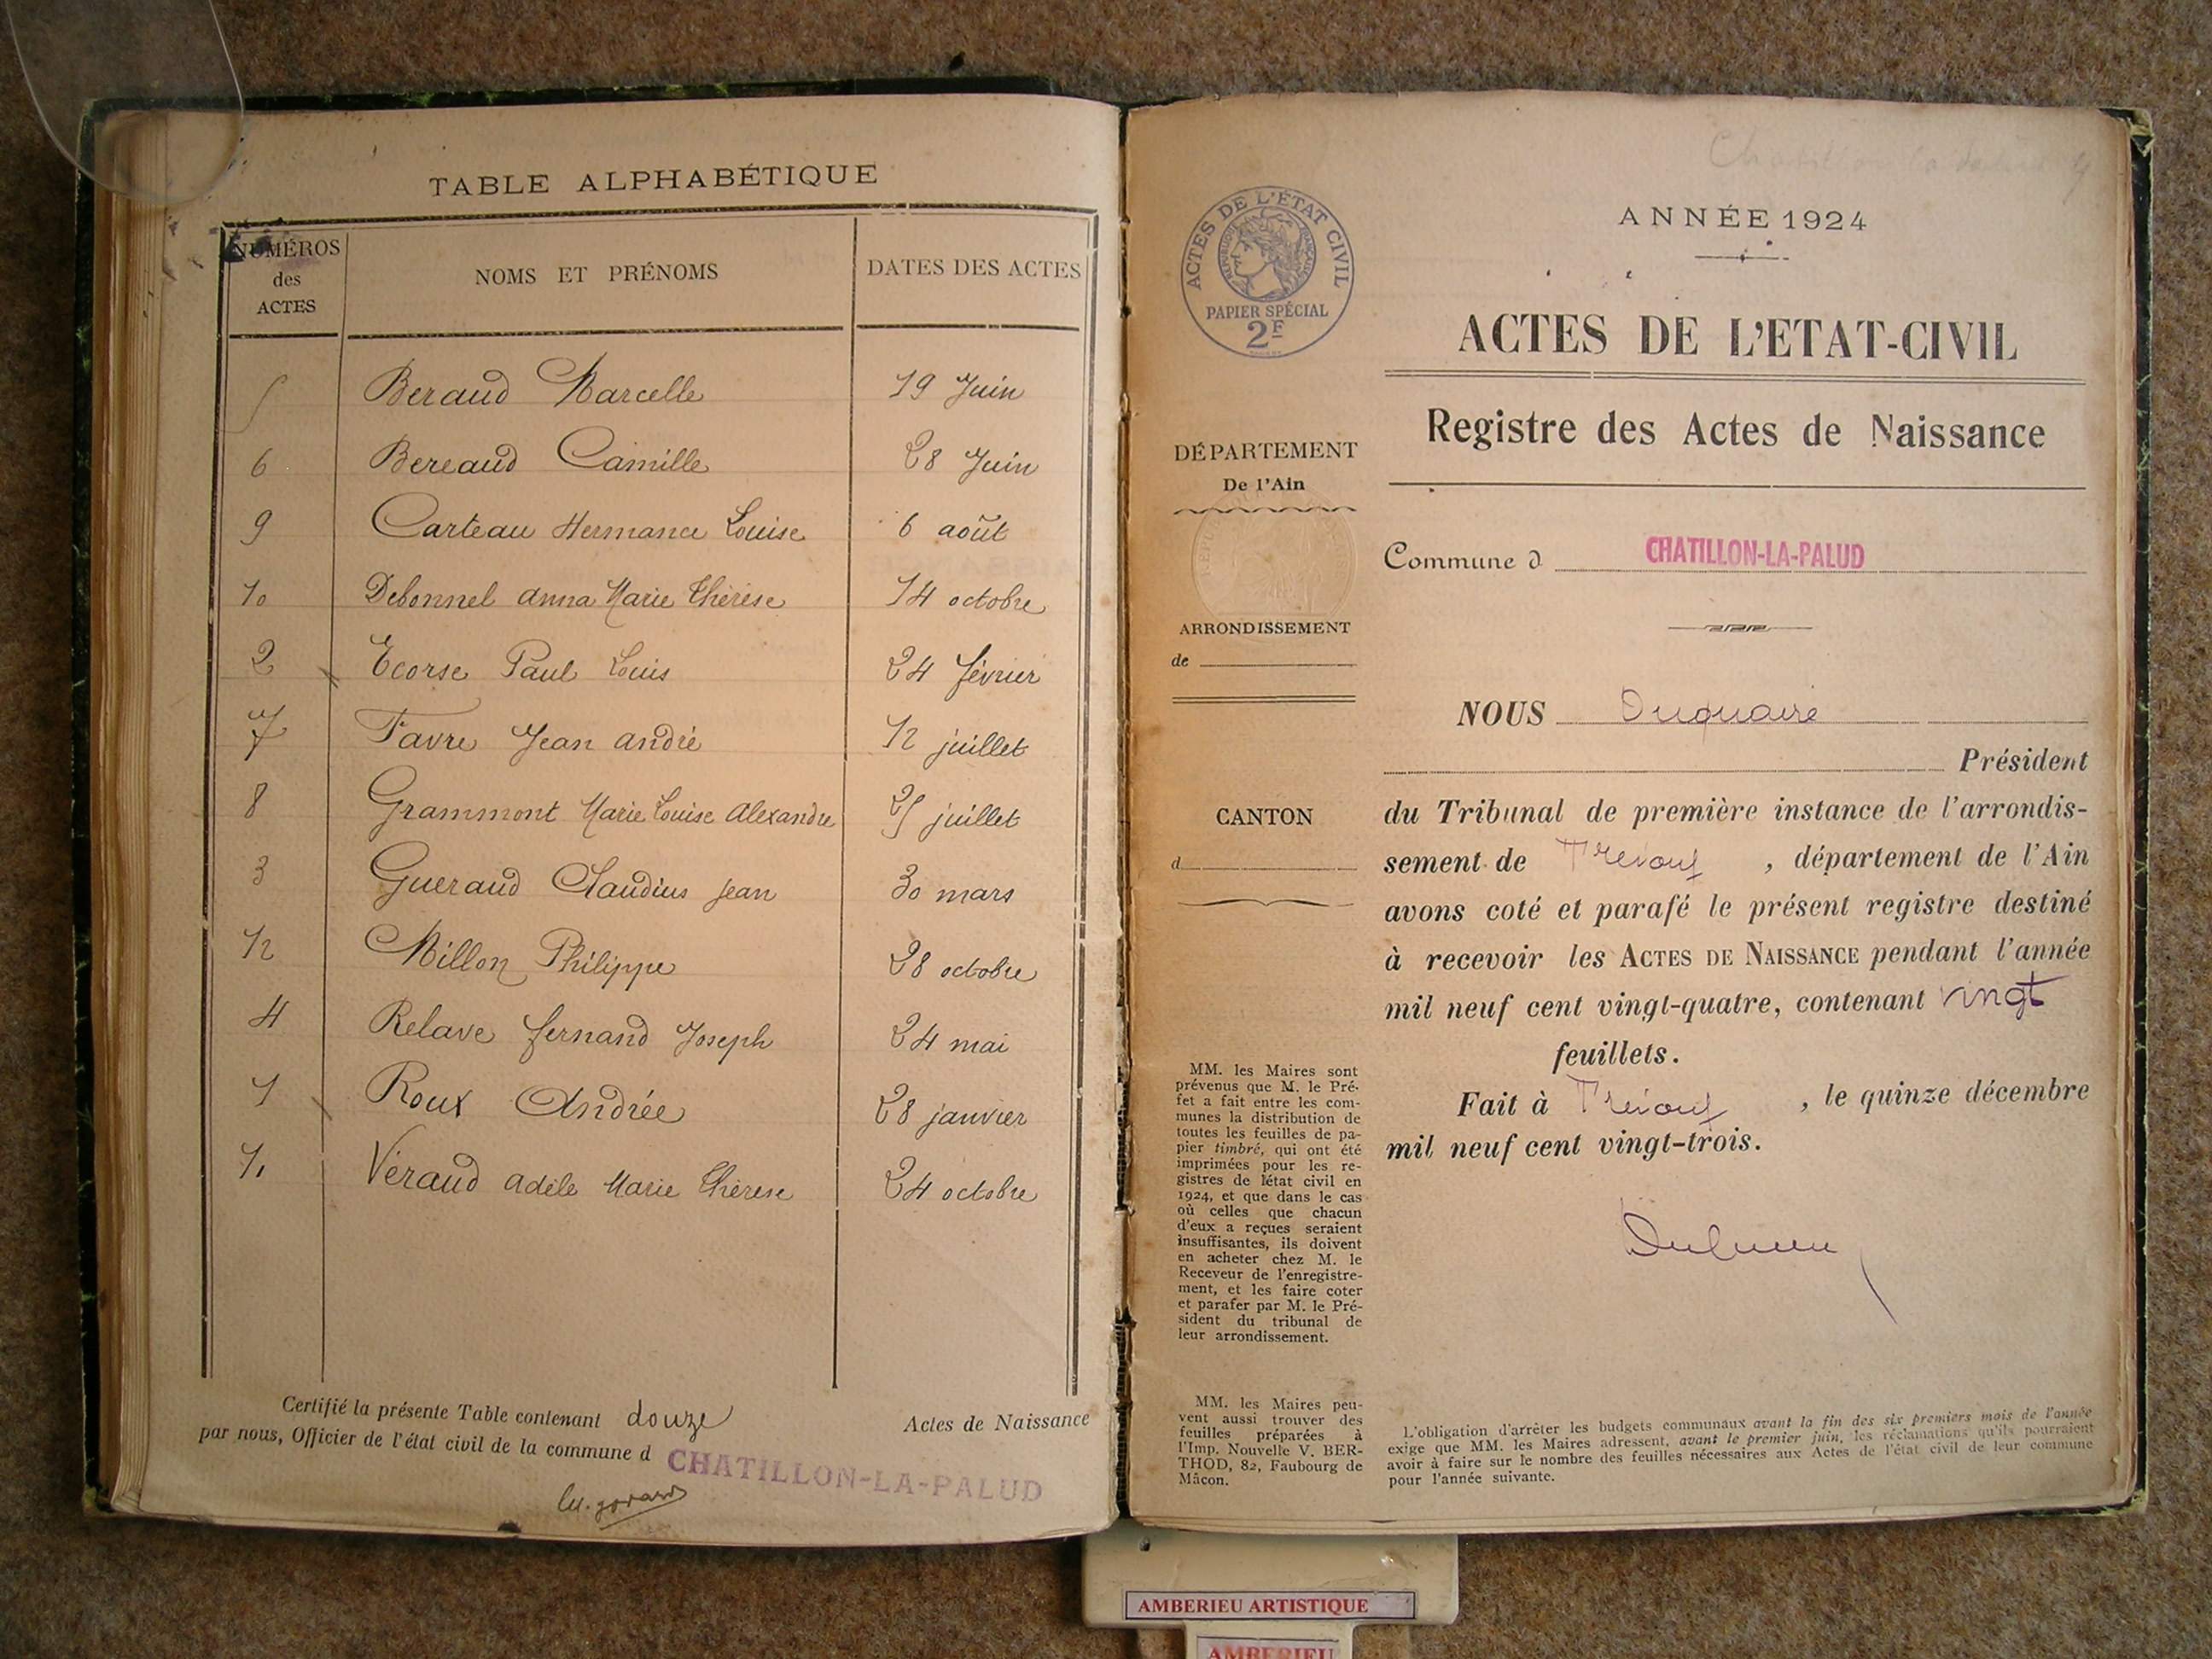 TABLE ALPHABÉTIQUE
NUMÉROS des ACTES NOMS ET PRÉNOMS DATES DES ACTES
5 Beraud Marcelle 19 Juin
6 Bereaud Camille 28 Juin
9 Carteau Hermance Louise 6 août
10 Debonnel Anna Marie Thérèse 14 octobre
2 Ecorse Paul Louis 24 février
7 Favre Jean André 12 juillet
8 Grammont Marie Louise Alexandre 25 juillet
3 Gueraud Claudius Jean 30 mars
12 Millon Philippe 28 octobre
4 Relave Fernand Joseph 24 mai
1 Roux Andrée 28 janvier
11 Véraud Adèle Marie Thérèse 24 octobre
Certifié la présente Table contenant douze Actes de Naissance
par nous, Officier de l'état civil de la commune d CHATILLON-LA-PALUD
ANNÉE 1924
ACTES DE L'ÉTAT CIVIL
RÉPUBLIQUE FRANÇAISE
PAPIER SPÉCIAL
2F
ACTES DE L'ETAT-CIVIL
Registre des Actes de Naissance
DÉPARTEMENT
De l'Ain
Commune d CHATILLON-LA-PALUD
ARRONDISSEMENT
de
CANTON
d
NOUS Duquaire
Président
du Tribunal de première instance de l'arrondis-
sement de Trévoux , département de l'Ain
avons coté et parafé le présent registre destiné
à recevoir les ACTES DE NAISSANCE pendant l'année
mil neuf cent vingt-quatre, contenant vingt
feuillets.
Fait à Trévoux , le quinze décembre
mil neuf cent vingt-trois.
MM. les Maires sont
prévenus que M. le Pré-
fet a fait entre les com-
munes la distribution de
toutes les feuilles de pa-
pier timbré, qui ont été
imprimées pour les re-
gistres de l'état civil en
1924, et que dans le cas
où celles que chacun
d'eux a reçues seraient
insuffisantes, ils doivent
en acheter chez M. le
Receveur de l'enregistre-
ment, et les faire coter
et parafer par M. le Pré-
sident du tribunal de
leur arrondissement.
MM. les Maires peu-
vent aussi trouver des
feuilles préparées à
l'Imp. Nouvelle V. BER-
THOD, 82, Faubourg de
Mâcon.
L'obligation d'arrêter les budgets communaux avant la fin des six premiers mois de l'année
exige que MM. les Maires adressent, avant le premier juin, les réclamations qu'ils pourraient
avoir à faire sur le nombre des feuilles nécessaires aux Actes de l'état civil de leur commune
pour l'année suivante.
AMBERIEU ARTISTIQUE
AMBERIEU